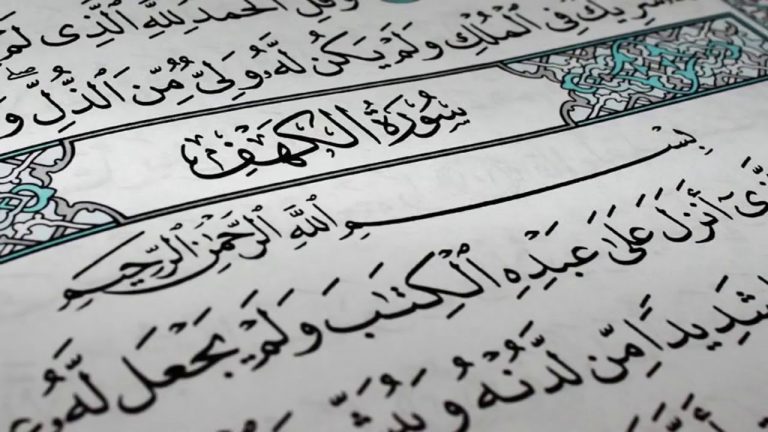 وَقُلِ ٱلۡحَمۡدُ لِلَّهِ ٱلَّذِى لَمۡ
شَرِيكٞ فِى ٱلۡمُلۡكِ وَلَمۡ يَكُن لَّهُۥ وَلِىّٞ مِّنَ ٱلذُّلِّ ۖ وَ
سُورَةُ الكَهۡفِ
بِسۡمِ ٱللَّهِ ٱلرَّحۡمَٰنِ ٱلرَّحِيمِ
أَنزَلَ عَلَىٰ عَبۡدِهِ ٱلۡكِتَٰبَ وَلَمۡ يَجۡعَل لَّهُۥ
شَدِيدٗا مِّن لَّدُنۡهُ وَيُبَشِّ